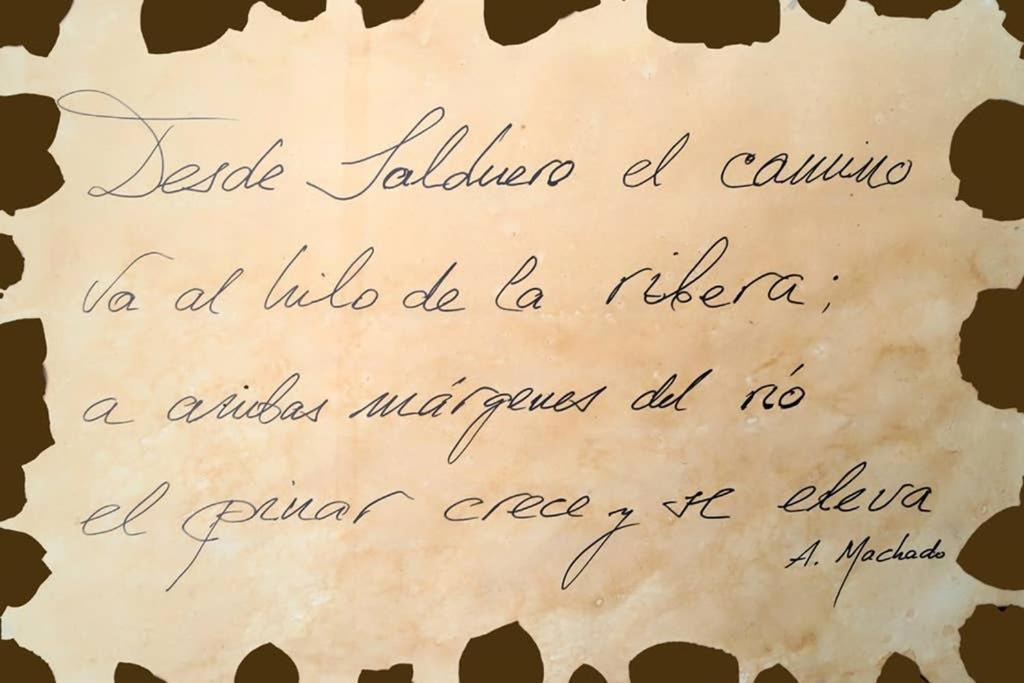 Desde Salduero el camino
va al hilo de la ribera;
a ambas márgenes del río
el pinar crece y se eleva
A. Machado